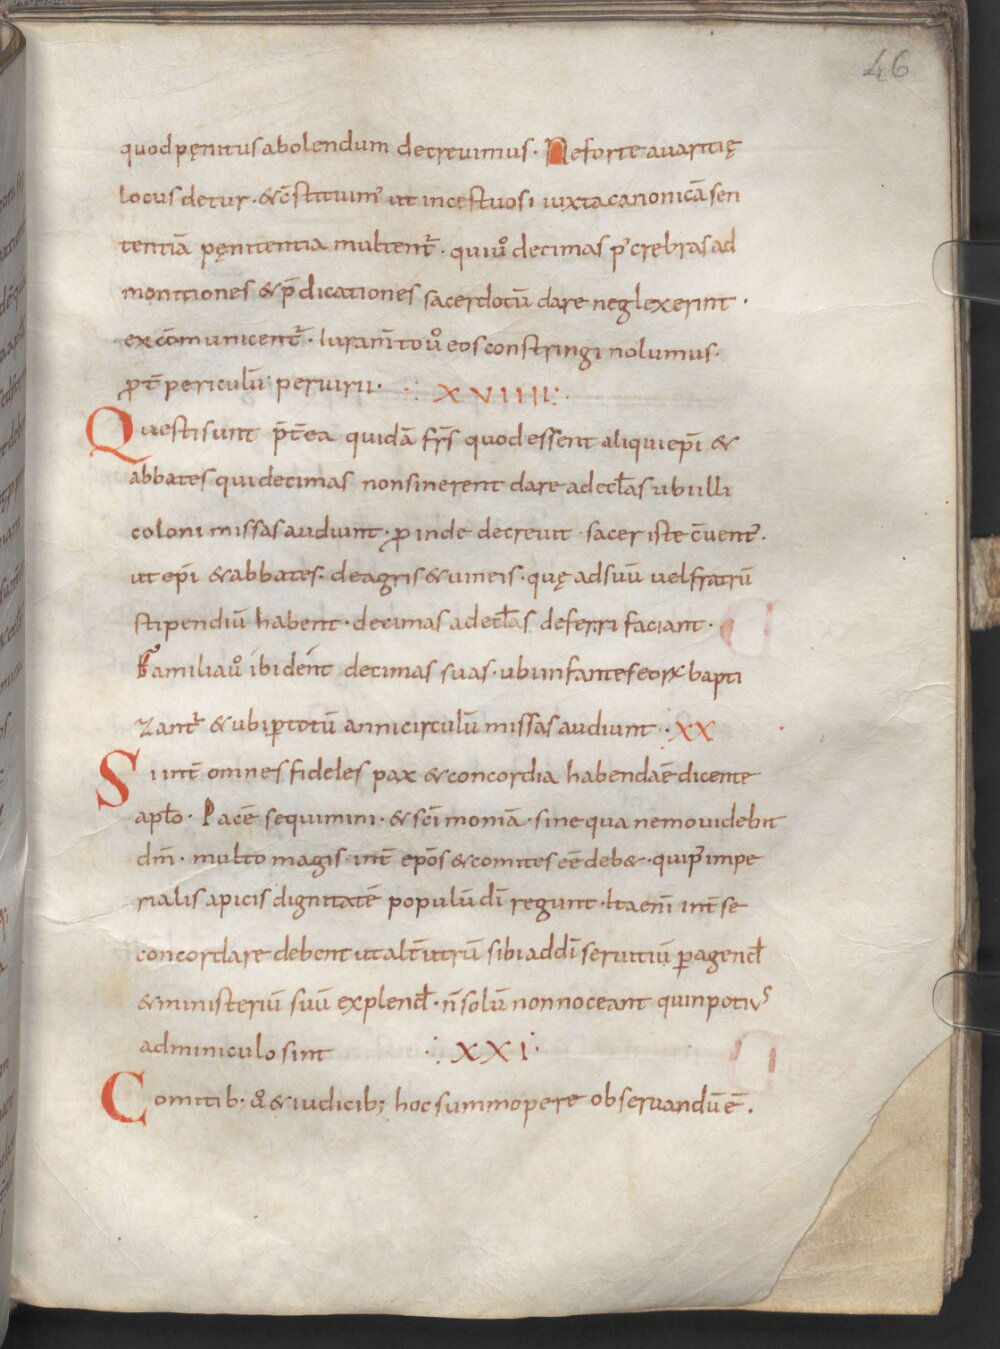 46
quod pęnitus abolendum decrevimus. Ne forte avaritię
locus detur. & c̄stituim᾽ ut incestuosi iuxta canonicā sen
tentiā pęnitentia multent᷑. qui ů decimas p᾽ crebras ad
monitiones & p̄dicationes sacerdotū dare neglexerint.
excōmunicent᷑. Iuram̄to ů eos constringi nolumus.
ꝓt̄ periculū periurii. XVIIII.
Questi sunt p̄t̄ea quidā fr̄s quod essent aliqui ep̄i &
abbates qui decimas non sinerent dare ad eccl̄as ubi illi
coloni missas audiunt. ꝓinde decrevit sacer iste c̄vent᾽.
ut ep̄i & abbates. de agris & vineis. quę ad suū vel fratrū
stipendiū habent. decimas ad eccl̄as deferri faciant.
Familia ů ibi dent decimas suas. ubi infantes eoꝝ bapti
zant᷑ & ubi ꝑ totū anni circulū missas audiunt. XX
Si int̄ omnes fideles pax & concordia habenda ē dicente
apl̄o. Pacē sequimini. & sc̄imoniā. sine qua nemo videbit
dm̄. multo magis int̄ ep̄os & comites eē deb&. qui p᾽ impe
rialis apicis dignitatē populū dī regunt. Ita eni᷑ int̄ se
concordare debent ut alt̄utrū sibi ad dī servitiū ꝑagend̄
& ministeriū suū explend̄. n̄ solū non noceant quin potiꝰ
adminiculo sint XXI.
Comitib. ů & iudicib; hoc summopere observandū ē.